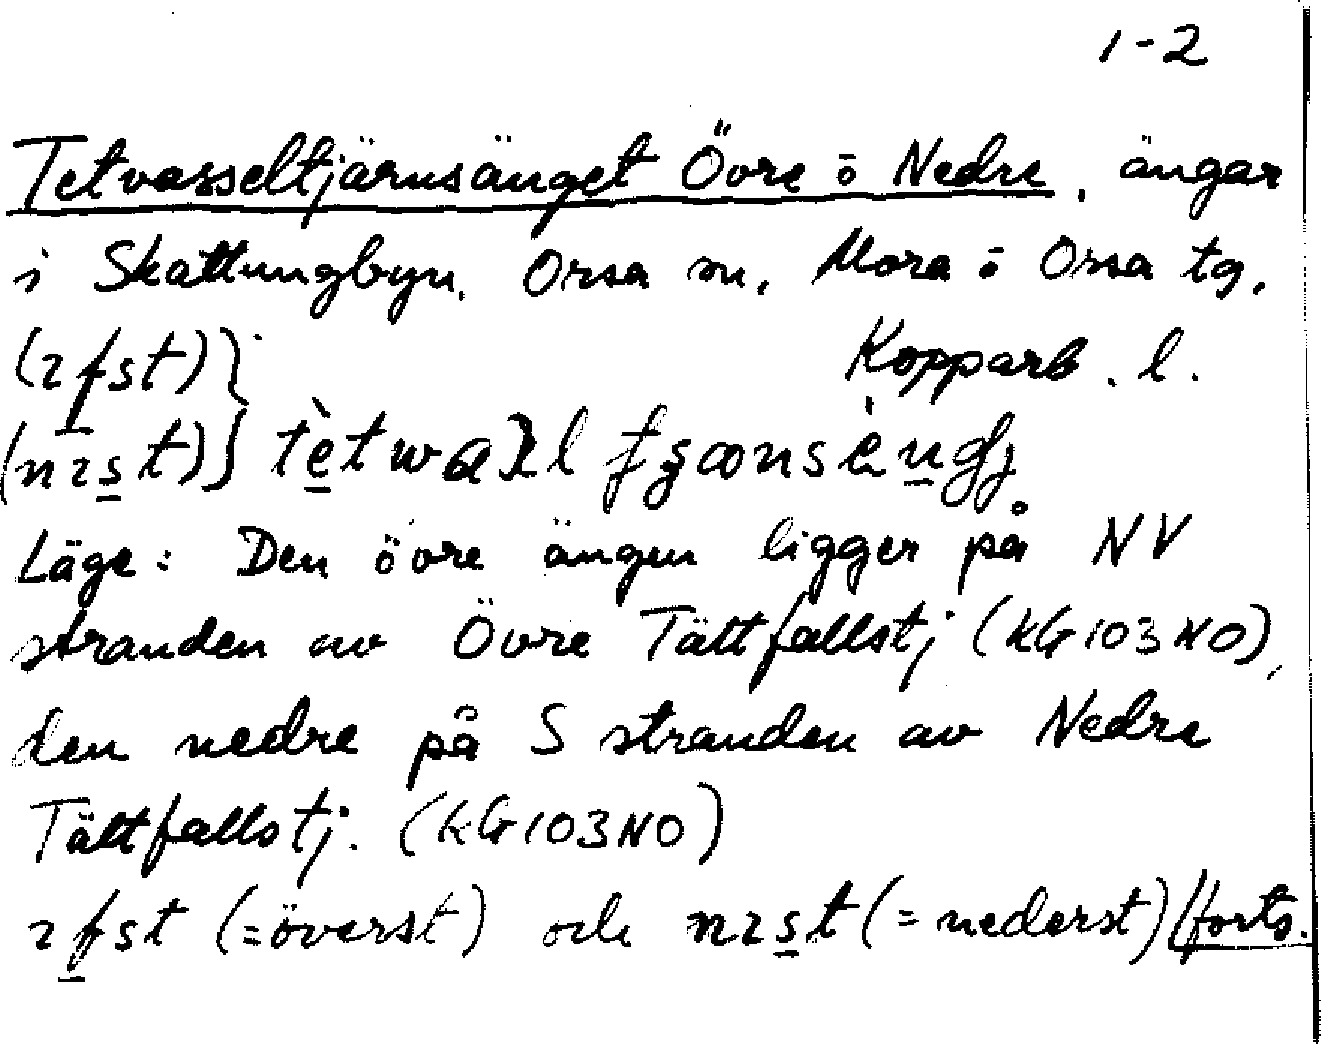 1-2
Tetvasseltjärnsänget Övre o Nedre, ängar
i Skattungbyn, Orsa sn, Mora o Orsa tg,
(ɿfst)} Kopparb. l.
(nɿst)} tètwaʟl
Läge: Den övre ängen ligger på NV
stranden av Övre Tättfallstj (KG103NO),
den nedre på S stranden av Nedre
Tättfallstj. (KG103NO)
ɿfst (=överst) och nɿst (=nederst) /forts.